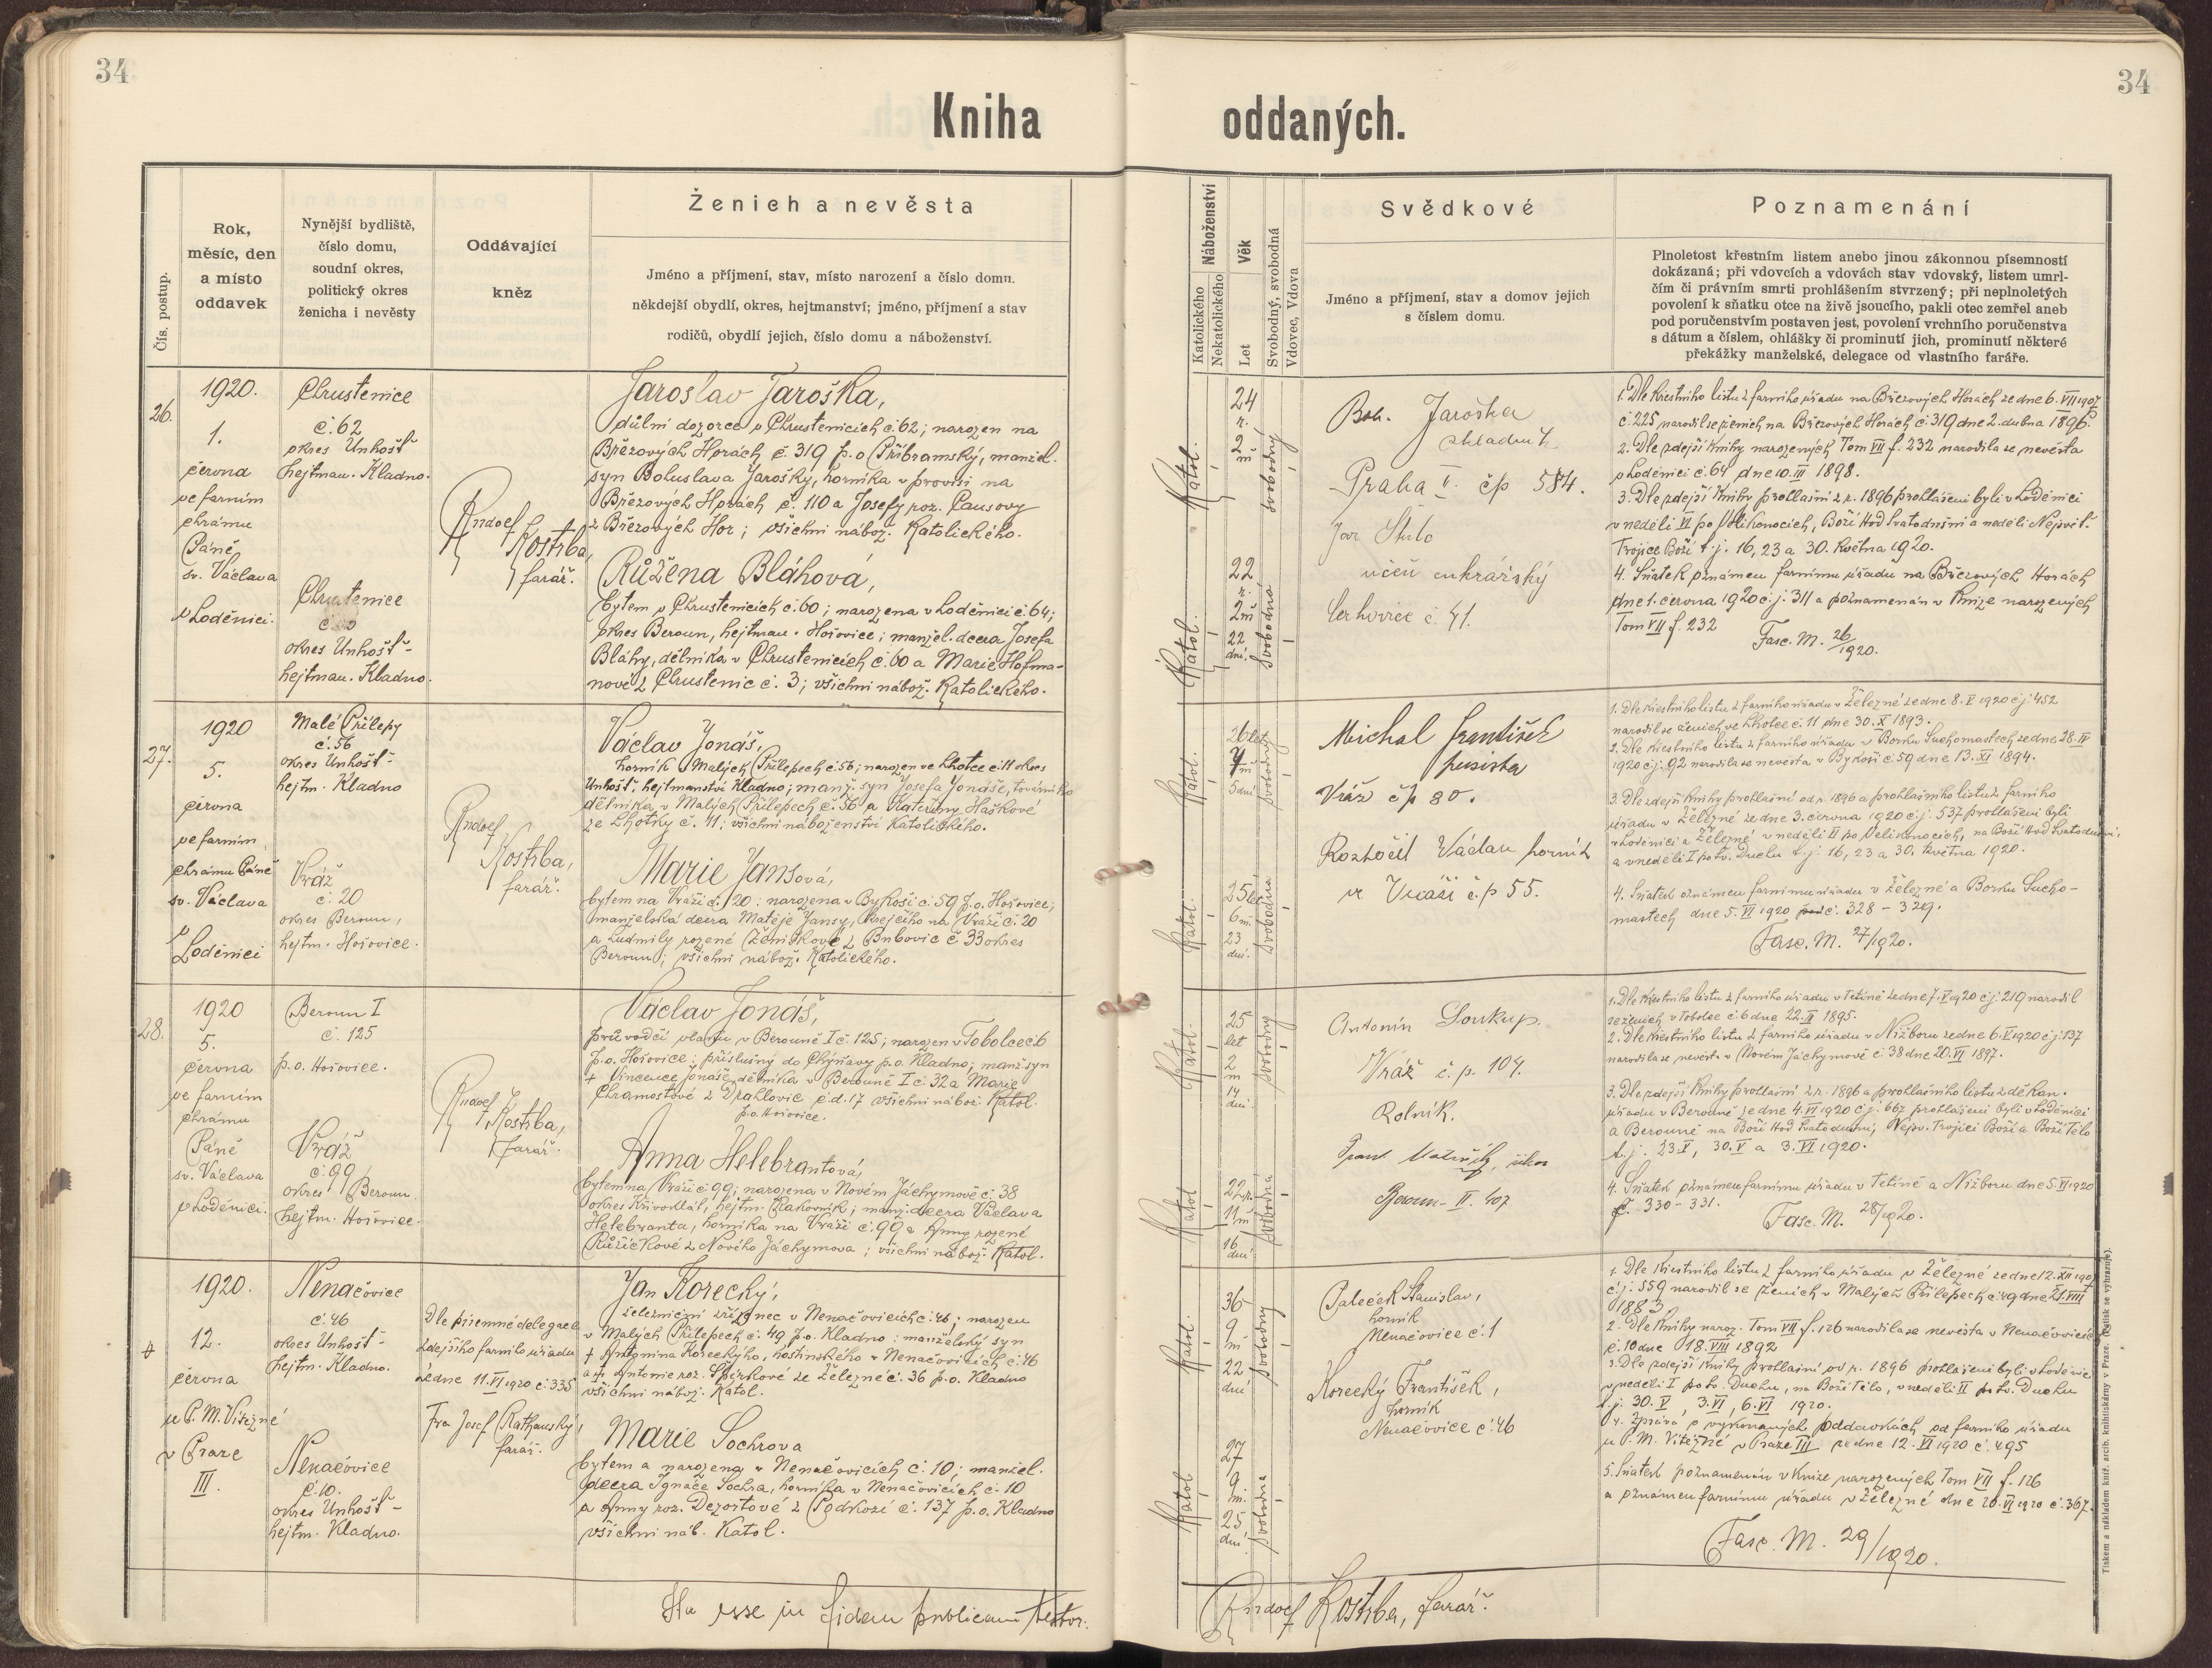 34
34
Kniha oddaných.
Čís. postup.
Rok,
měsíc, den
a místo
oddavek
Nynější bydliště,
číslo domu,
soudní okres,
politický okres
ženicha i nevěsty
Oddávající
kněz
Ženich a nevěsta
Jméno a příjmení, stav, místo narození a číslo domu.
někdejší obydlí, okres, hejtmanství; jméno, příjmení a stav
rodičů, obydlí jejich, číslo domu a náboženství.
Náboženství
Katolického
Nekatolického
Věk
Let
Svobodný, svobodná
Vdovec, Vdova
Svědkové
Jméno a příjmení, stav a domov jejich
s číslem domu.
Poznamenání
Plnoletost křestním listem anebo jinou zákonnou písemností
dokázaná; při vdovcích a vdovách stav vdovský, listem umrl-
čím či právním smrti prohlášením stvrzený; při neplnoletých
povolení k sňatku otce na živě jsoucího, pakli otec zemřel aneb
pod poručenstvím postaven jest, povolení vrchního poručenstva
s dátum a číslem, ohlášky či prominutí jich, prominutí některé
překážky manželské, delegace od vlastního faráře.
26.
1920.
1.
června
ve farním
chrámu
Páně
sv. Václava
v Loděnici.
Chrustenice
č. 62
okres Unhošť
hejtman. Kladno.
Chrustenice
okres Unhošť-
hejtman. Kladno.
Rudolf
Kostrba,
farář.
Jaroslav Jaroška,
důlní dozorce v Chrustenicích č. 62; narozen na
Březových Horách č. 319 p. o. Příbramský, manžel.
syn Bohuslava Jarošky, horníka v provisi na
Březových Horách č. 110 a Josefy roz. Pausovy
z Březových Hor; všichni nábož. Katolického.
Růžena Bláhová,
bytem v Chrustenicích č. 60; narozena v Loděnici č. 64;
okres Beroun, hejtman. Hořovice; manžel. dcera Josefa
Bláhy, dělníka v Chrustenicích č. 60 a Marie Hofma-
nové z Chrustenic č. 3; všichni nábož. Katolického.
Katol.
24
r.
2
m
svobodný
Katol.
22
r.
2 m
22
dní.
svobodná
Boh. Jaroška
Praha II. čp 584.
učeň cukrářský
č 41.
1. Dle křestního listu z farního úřadu na Březových Horách ze dne 6. VII 1907
č. 225 narodil se ženich na Březových Horách č. 319 dne 2. dubna 1896.
2. Dle zdejší knihy narozených Tom VII f. 232 narodila se nevěsta
v Loděnici č. 64 dne 10. III 1898.
3. Dle zdejší knihy prohlášní z r. 1896 prohlášeni byli v Loděnici
v neděli VI po Velikonocích, Boží Hod Svatodušní a neděli Nejsvět.
Trojice Boží t. j. 16, 23 a 30. května 1920.
4. Sňatek oznámen farnímu úřadu na Březových Horách
dne 1. června 1920 č. j. 311 a poznamenán v knize narozených
Tom VII f. 232
Fasc. M. 26/1920.
27.
1920
5.
června
ve farním
chrámu Páně
sv. Václava
v
Loděnici
Malé Přílepy
č. 56
okres Unhošť-
hejtm. Kladno
Vráž
č. 20
okres Beroun,
hejtm. Hořovice.
Rudolf
Kostrba,
farář.
Václav Jonáš,
horník v Malých Přílepech č. 56; narozen ve Lhotce č. 11 okres
Unhošť, hejtmanství Kladno; manž. syn Josefa Jonáše, továrního
dělníka, v Malých Přílepech č. 56 a Kateřiny Haškové
ze Lhotky č. 11; všichni náboženství Katolického.
Marie Jansová,
bytem na Vráži č. 20; narozena v Bykoši č. 59 p. o. Hořovice;
manželská dcera Matěje Jansy, krejčího na Vráži č. 20
a Ludmily rozené Žemličkové z Bubovic č 33 okres
Beroun; všichni nábož. Katolického.
Katol.
26 let
7 m
5 dní
svobodný
Katol.
25 let
6 m.
23
dní.
svobodná
Michal František
Vráž čp 80.
Roztočil Václav horník
ve Vráži č.p 55.
1. Dle křestního listu z farního úřadu v Železné ze dne 8. V 1920 č j. 452
narodil se ženich ve Lhotce č. 11 dne 30. X 1893.
2. Dle křestního listu z farního úřadu v Borku Suchomastech ze dne 28. IV
1920 č j. 92 narodila se nevěsta v Bykoši č. 59 dne 13. XI 1894.
3. Dle zdejší knihy prohlášní od r. 1896 a prohlášního listu z farního
úřadu v Železné ze dne 3. června 1920 č. j. 537 prohlášeni byli
v Loděnici a Železné v neděli VI po Velikonocích, na Boží Hod Svatodušní,
a v neděli I po sv. Duchu t. j. 16, 23 a 30. května 1920.
4. Sňatek oznámen farnímu úřadu v Železné a Borku Sucho-
mastech dne 5. VI 1920 č. 328 – 329.
Fasc. M. 27/1920.
28.
1920
5.
června
ve farním
chrámu
Páně
sv. Václava
v Loděnici.
Beroun I
č. 125
p. o. Hořovice.
Vráž
č. 99
okres Beroun.
hejtm. Hořovice.
Rudolf
Kostrba,
farář.
Václav Jonáš,
průvodčí vlaku v Berouně I č. 125; narozen v Tobolce č. 6
p. o. Hořovice; příslušný do Chýňavy p. o. Kladno; manž. syn
+ Vincence Jonáše, dělníka v Berouně I č. 32 a Marie
Chramostové z Drahlovic č. d. 17 všichni nábož. Katol.
p. o. Hořovice.
Anna Helebrantová,
bytem na Vráži č. 99; narozena v Novém Jáchymově č. 38
okres Křivoklát, hejtm. Rakovník; manž. dcera Václava
Helebranta, horníka na Vráži č. 99 a Anny rozené
Růžičkové z Nového Jáchymova; všichni nábož. Katol.
Katol.
25
let
2
m
14
dní.
svobodný
Katol
22 r.
11 m
16
dní.
svobodná
Antonín Soukup.
Vráž č. p. 104.
Rolník.
Beroun - II. 407
1. Dle křestního listu z farního úřadu v Tetíně ze dne 7. V 1920 č j. 219 narodil
se ženich v Tobolce č. 6 dne 22. III 1895.
2. Dle křestního listu z farního úřadu v Nižboru ze dne 6. V 1920 č j. 137
narodila se nevěsta v Novém Jáchymově č. 38 dne 20. VI 1897.
3. Dle zdejší knihy prohlášní z r. 1896 a prohlášního listu z děkan.
úřadu v Berouně ze dne 4. VI 1920 č j. 667 prohlášeni byli v Loděnici
a Berouně na Boží Hod Svatodušní, Nejsv. Trojici Boží a Boží Tělo
t. j. 23. V, 30. V a 3. VI 1920.
4. Sňatek oznámen farnímu úřadu v Tetíně a Nižboru dne 5. VI 1920
č. 330 - 331.
Fasc. M. 28/1920.
1920.
12.
června
u P. M. Vítězné
v Praze
III.
Nenačovice
č. 46
okres Unhošť-
hejtm. Kladno.
Nenačovice
č. 10.
okres Unhošť-
hejtm. Kladno.
Dle písemné delegace
zdejšího farního úřadu
ze dne 11. VI 1920 č. 335
Fra Josef Rathauský,
farář.
Jan Korecký,
železniční zřízenec v Nenačovicích č. 46; narozen
v Malých Přílepech č. 49 p. o. Kladno; manželský syn
+ Antonína Koreckýho, hostinského v Nenačovicích č. 46
a + Antonie roz. Spěrklové ze Železné č. 36 p. o. Kladno
všichni nábož. Katol.
Marie Sochrova
bytem a narozena v Nenačovicích č. 10; manžel.
dcera Ignáce Sochra, horníka v Nenačovicích č. 10
a Anny roz. Dezortové z Podkozí č. 137 p. o. Kladno
všichni náb. Katol.
Katol
36
9
m
22
dní
svobodný
Katol
27
9
m.
25
dní.
svobodná
Paleček Stanislav,
horník
Nenačovice č. 1
Korecký František,
horník
Nenačovice č. 46
1. Dle křestního listu z farního úřadu v Železné ze dne 12. XII 1907
č. j. 559 narodil se ženich v Malých Přílepech č. 49 dne 21. VIII
1883.
2. Dle knihy naroz. Tom VII f. 126 narodila se nevěsta v Nenačovicích
č. 10 dne 18. VIII 1892
3. Dle zdejší knihy prohlášní od r. 1896 prohlášeni byli v Loděnici
v neděli I po sv. Duchu, na Boží Tělo, v neděli II po sv. Duchu
t. j. 30. V, 3. VI, 6. VI 1920.
4. Zpráva o vykonaných oddavkách od farního úřadu
u P. M. Vítězné v Praze III ze dne 12. VI 1920 č. 495
5. Sňatek poznamenán v knize narozených Tom VII f. 126
a oznámen farnímu úřadu v Železné dne 20. VI 1920 č. 367.
Fasc. M. 29/1920.
Ita esse in fidem publicam testor:
Rudolf Kostrba, farář.
Tiskem a nákladem kníž. arcib. knihtiskárny v Praze. (Tisk se vyhrazuje).